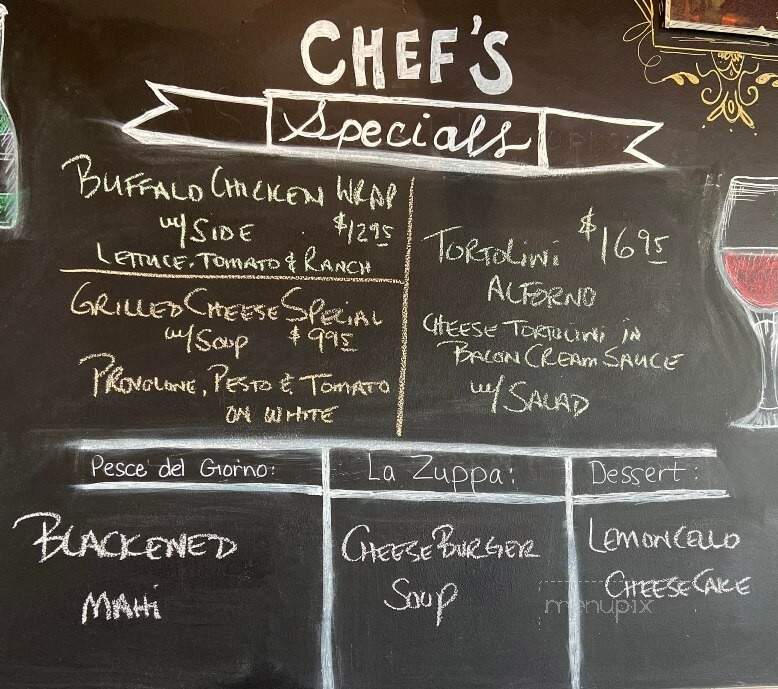 CHEF'S
Specials
BUFFALO CHICKEN WRAP
w/ SIDE $12.95
LETTUCE, TOMATO & RANCH
GRILLED CHEESE SPECIAL
w/ SOUP $9.95
PROVOLONE, PESTO & TOMATO
ON WHITE
TORTOLINI $16.95
ALFORNO
CHEESE TORTOLINI IN
BACON CREAM SAUCE
w/ SALAD
Pesce del Giorno:
BLACKENED
MAHI
La Zuppa:
CHEESEBURGER
Soup
Dessert:
LEMONCELLO
CHEESECAKE
menupix